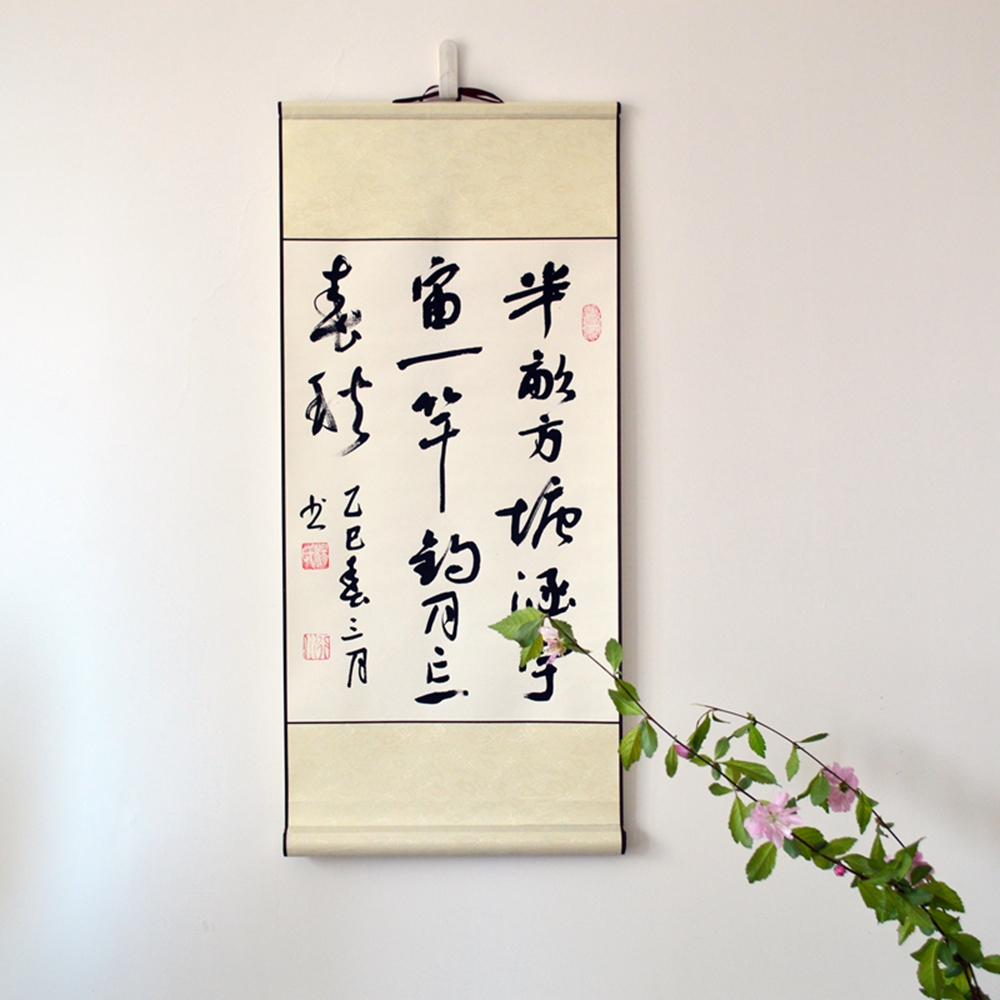 半畝方塘涵宇
宙一竿釣月忘
春秋
乙巳春三月
书